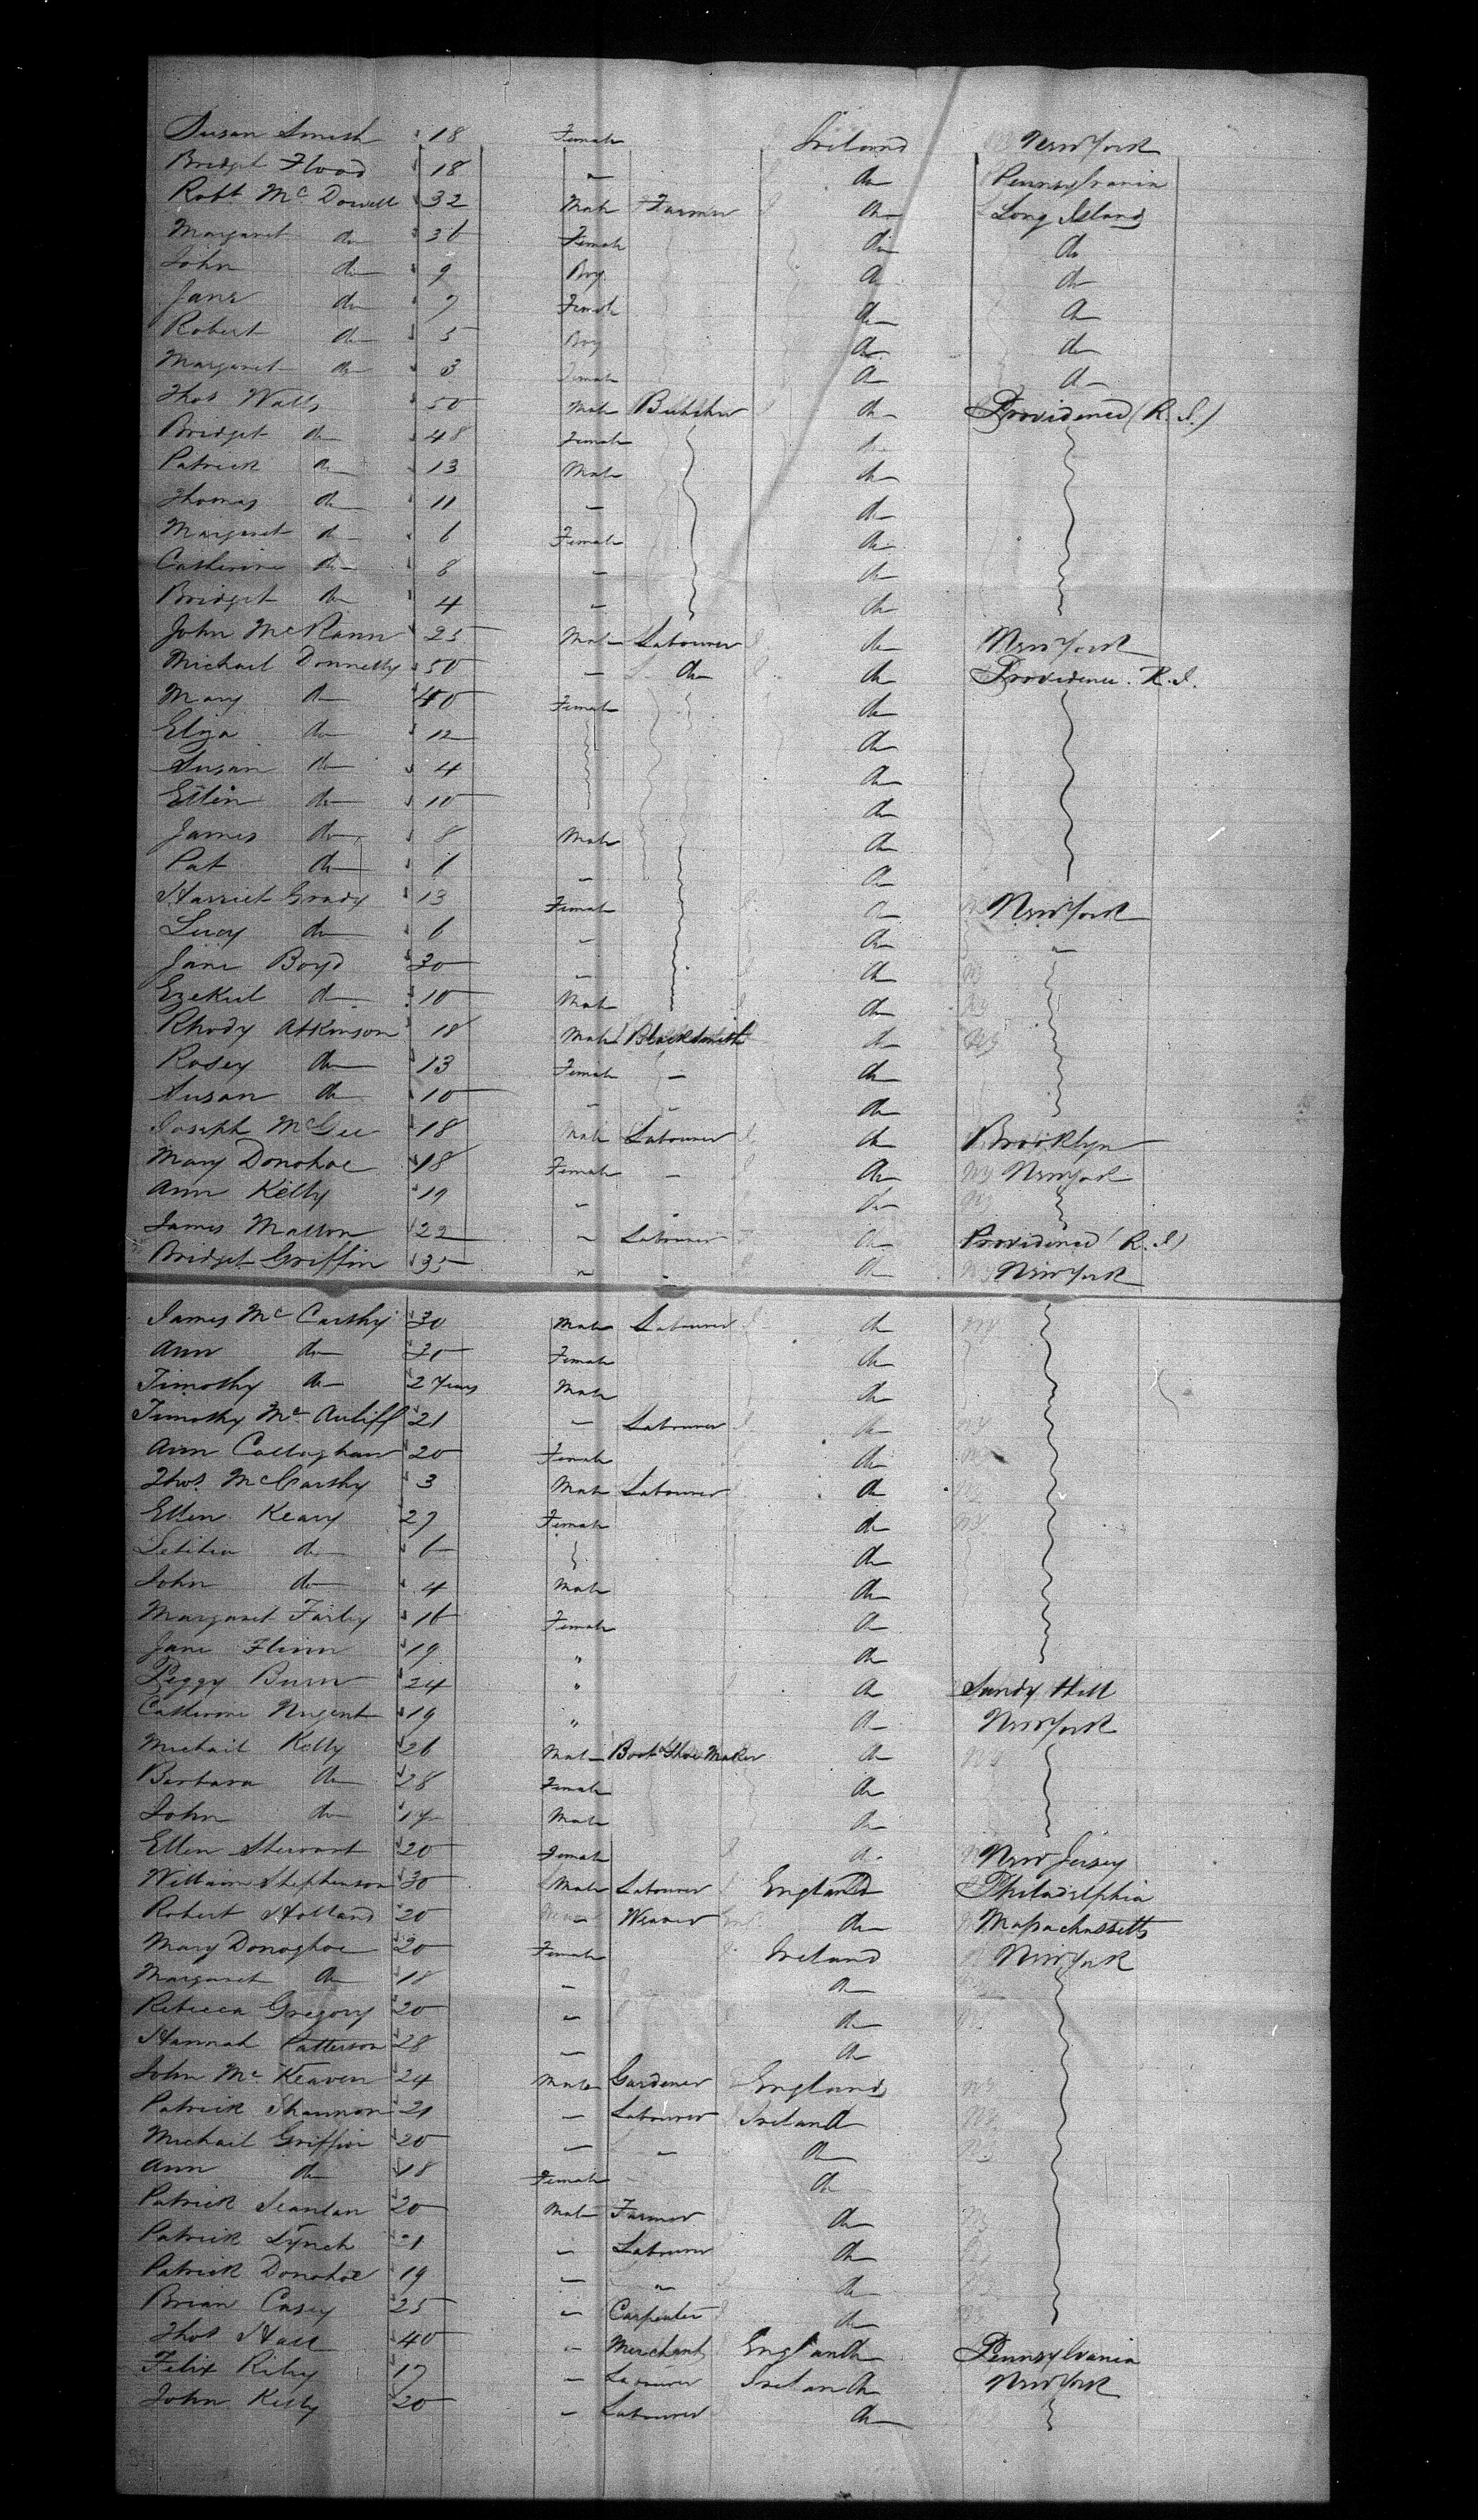 Susan Smith 18 Female Ireland New York
Bridget Flood 18 " do Pennsylvania
Robt McDowell 32 Male Farmer do Long Island
Margaret do 36 Female do do
John do 9 Boy do do
Jane do 7 Female do do
Robert do 5 Boy do do
Margaret do 3 Female do do
Thos Watts 50 Male Butcher do Providence (R. I.)
Bridget do 48 Female do
Patrick do 13 Male do
Thomas do 11 " do
Margaret do 6 Female do
Catherine do 8 " do
Bridget do 4 " do
John McKann 25 Male Labourer do New York
Michael Donnelly 50 " do do Providence. R. I.
Mary do 40 Female do
Eliza do 12 do
Susan do 4 do
Ellen do 10 do
James do 8 Male do
Pat do 1 " do
Harriet Grady 13 Female do New York
Lucy do 6 " do "
Jane Boyd 30 " do
Ezekiel do 10 Male do
Rhody Atkinson 18 Male Blacksmith do
Rosey do 13 Female " do
Susan do 10 " " do
Joseph McGee 18 Male Labourer do Brooklyn
Mary Donohoe 18 Female " do NY New York
Ann Kelly 19 " " do
James Mallon 22 " Labourer do Providence (R. I.)
Bridget Griffin 35 " " do New York
James McCarthy 30 Male Labourer do
Ann do 30 Female do
Timothy do 2 Years Male do
Timothy McAuliff 21 " Labourer do
Ann Callaghan 20 Female do
Thos. McCarthy 3 Male Labourer do
Ellen Keary 27 Female do
Letitia do 6 do
John do 4 Male do
Margaret Farley 16 Female do
Jane Flinn 19 " do
Peggy Burn 24 " do Sandy Hill
Catherine Nugent 19 " do New York
Michail Kelly 26 Male Boot & Shoe Maker do
Barbara do 28 Female do
John do Male do
Ellen Stewart 20 Female do New Jersey
William Stephenson 30 Male Labourer England Philadelphia
Robert Holland 20 " Weaver do Massachussetts
Mary Donoghoe 20 Female Ireland New York
Margaret do 18 " do
Rebecca Gregory 20 " do
Hannah Patterson 28 " do
John McKeaven 24 Male Gardener England
Patrick Shannon 21 " Labourer Ireland
Michail Griffin 20 " " do
Ann do 18 Female do
Patrick Scanlan 20 Male Farmer do
Patrick Lynch 21 " Labourer do
Patrick Donohoe 19 " " do
Brian Casey 25 " Carpenter do
Thos Hall 40 " Merchant England Pennsylvania
Felix Riley 17 " Labourer Ireland New York
John Kelly 20 " Labourer do